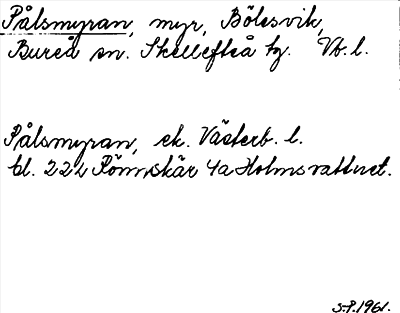 Pålsmyran, myr, Bölesvik,
Bureå sn. Skellefteå tg. Vb. l.
Pålsmyran, ek. Västerb. l.
bl. 222 Rönnskär 4a Holmsvattnet.
S.P. 1961.